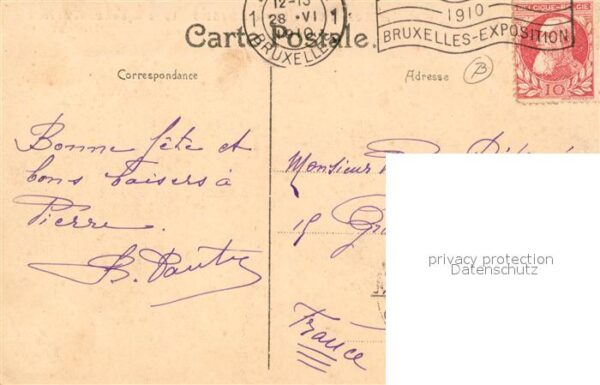 12-13
1 28 VI 1
1910
BRUXELLES
1910
BRUXELLES-EXPOSITION
BELGIQUE-BELGIË
10
Carte Postale.
Correspondance
Adresse
B
Bonne fête et
bons baisers à
Pierre.
Monsieur
15
France
privacy protection
Datenschutz